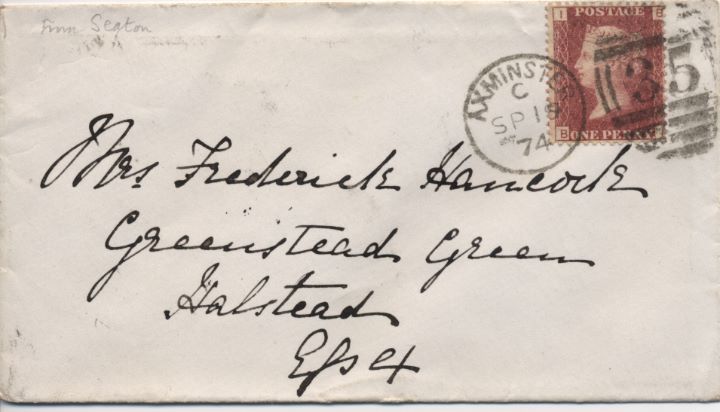 from Seaton
I E
POSTAGE
ONE PENNY
AXMINSTER
C
SP 18
74
35
Mrs. Frederick Hancock
Greenstead Green
Halstead
Essex